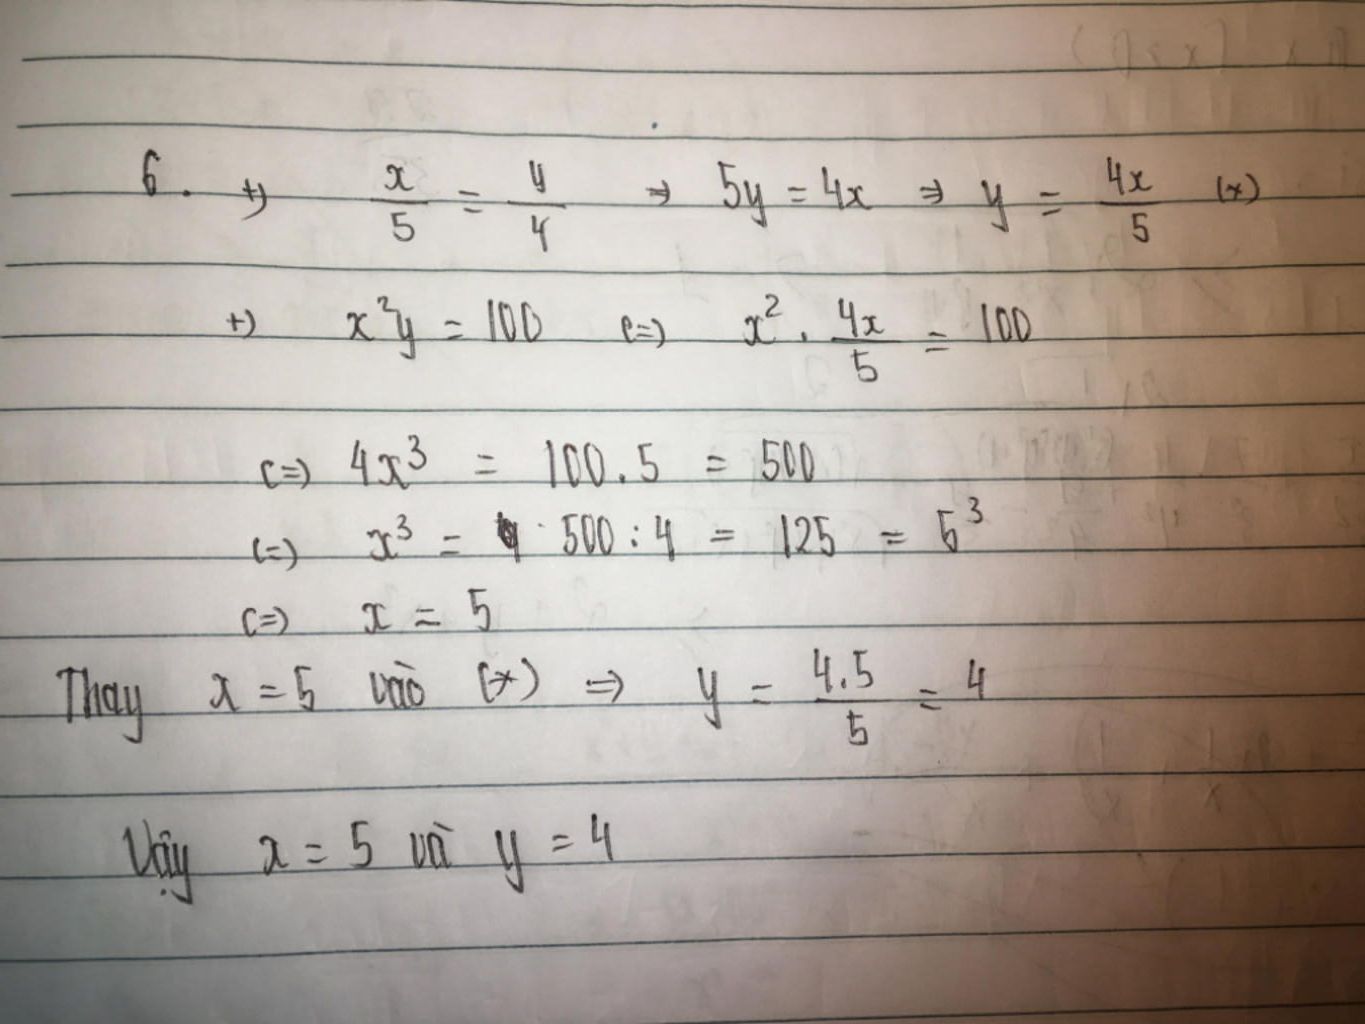 6. +) x/5 = y/4 => 5y = 4x => y = 4x/5 (*)
+) x²y = 100 <=> x² . 4x/5 = 100
<=> 4x³ = 100 . 5 = 500
<=> x³ = 500 : 4 = 125 = 5³
<=> x = 5
Thay x = 5 vào (*) => y = 4.5/5 = 4
Vậy x = 5 và y = 4